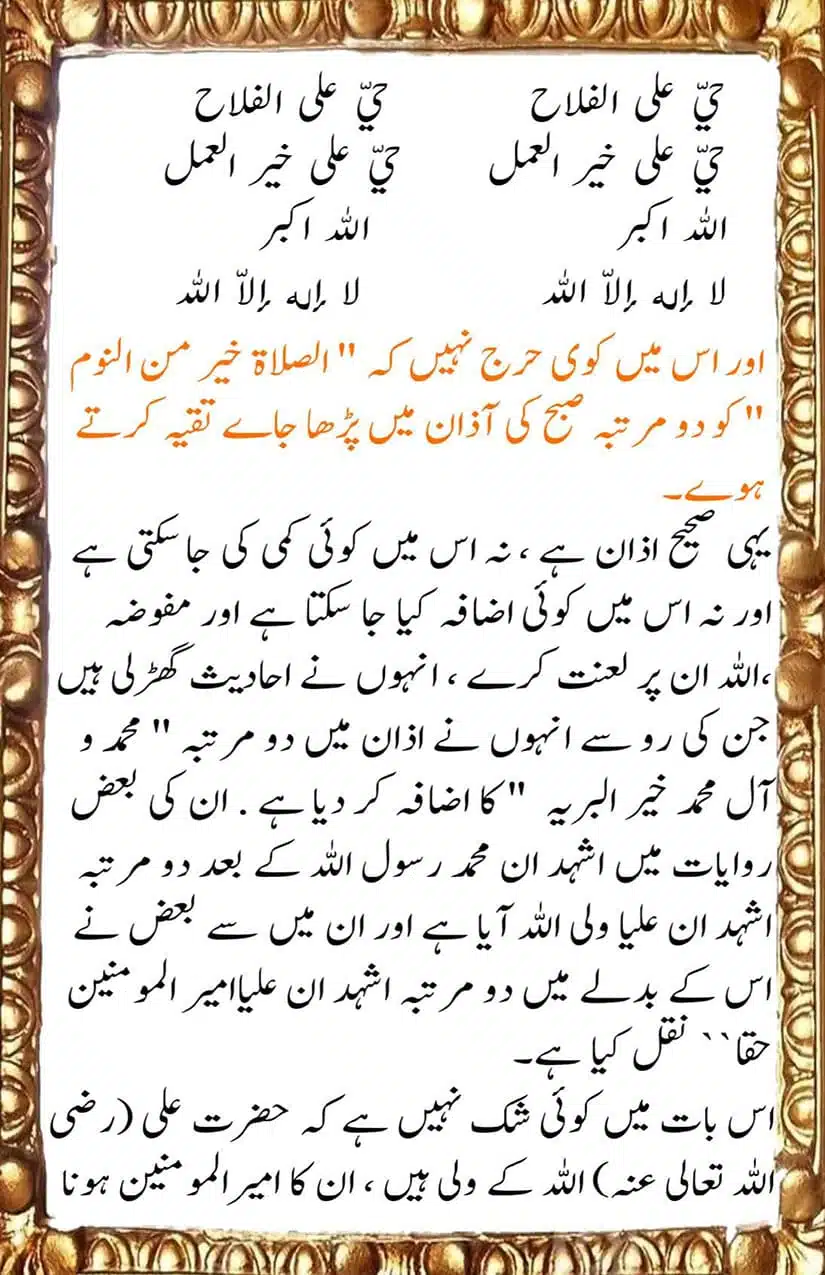 حيّ على الفلاح حيّ على الفلاح
حيّ على خير العمل حيّ على خير العمل
الله اكبر الله اكبر
لا إله إلاّ الله لا إله إلاّ الله
اور اس میں کوی حرج نہیں کہ " الصلاة خير من النوم
" کو دو مرتبہ صبح کی آذان میں پڑھا جاے تقیہ کرتے
ہوے۔
یہی صحیح اذان ہے ، نہ اس میں کوئی کمی کی جا سکتی ہے
اور نہ اس میں کوئی اضافہ کیا جا سکتا ہے اور مفوضہ
،اللہ ان پر لعنت کرے ، انہوں نے احادیث گھڑلی ہیں
جن کی رو سے انہوں نے اذان میں دو مرتبہ " محمد و
آل محمد خیر البریہ " کا اضافہ کر دیا ہے . ان کی بعض
روایات میں اشہد ان محمد رسول اللہ کے بعد دو مرتبہ
اشہد ان علیا ولی اللہ آیا ہے اور ان میں سے بعض نے
اس کے بدلے میں دو مرتبہ اشہد ان علیاامیر المومنین
حقا`` نقل کیا ہے۔
اس بات میں کوئی شک نہیں ہے کہ حضرت علی (رضی
اللہ تعالی عنہ) اللہ کے ولی ہیں ، ان کا امیرالمومنین ہونا